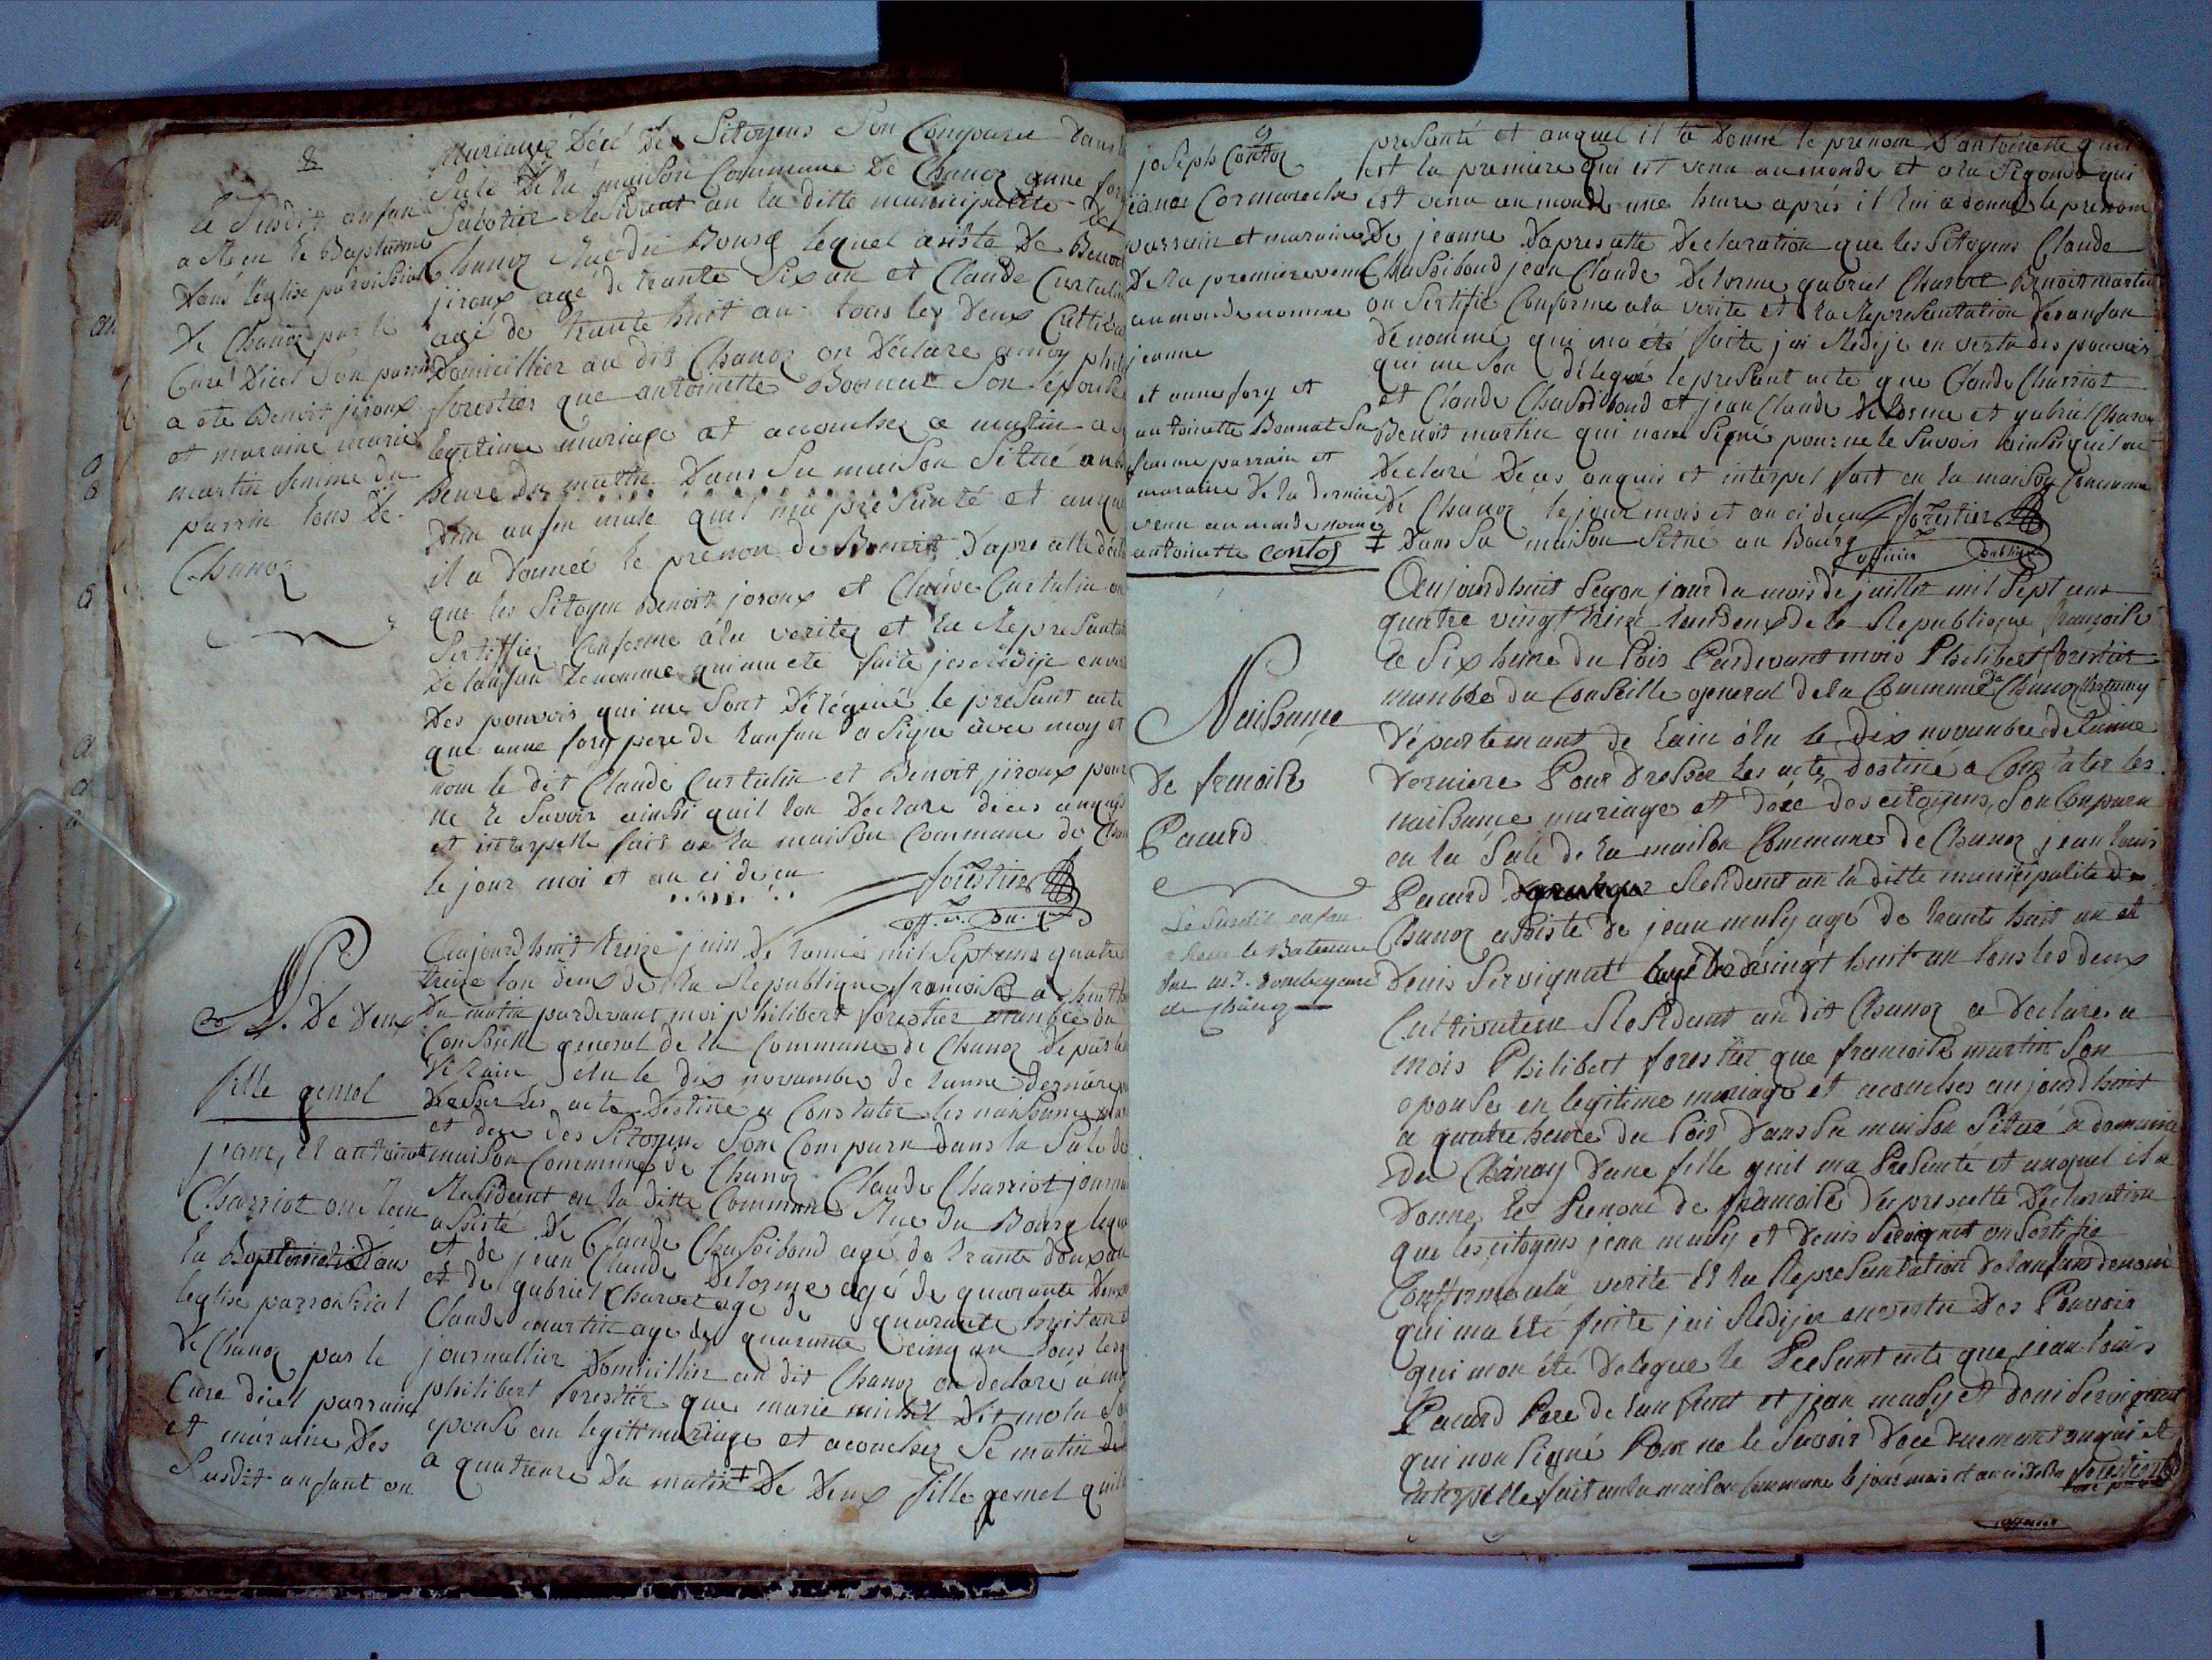 8
le Susdit anfan
a Reçu le Baptisme
dans l'eglise paroissial
de Chanoz par le
Curé dicel son parrin
a ete Benoit jiroux
et maraine marie
martin femme du
parrin tous de
Chanoz
mariage Décé des Sitoyens Son Comparu dans
Sale de la maison Commune de Chanoz anne fory
Sabotier Residant an la ditte municipalité de
Chanoz Rue du Bourg lequel asisté de Benoit
jiroux agé de trante Six an et Claude Curtalin
agé de trante huit an tous les deux Cultiva
Domicillier au dit Chanoz on déclaré a moy phili
forestier que antoinette Bonnat Son épouse
legitime mariage et acouchez ce matin a
heure du matin Dans Sa maison Situé au
d'un anfan male quil ma presanté et auquel
il a donnéé le prénon de Benoit d'apre cette décl
que les Sitoyen Benoit joroux et Claude Curtalin on
Sertiffiez Conforme a la veritez et la Represantat
de lanfan denommé qui ma eté faite je Redijé en ver
Des pouvoir qui me Sont délégué le presant acte
que anne fory pere de lanfan a Signe avec moy et
non le dit Claude Curtalin et Benoit jiroux pour
ne le Savoir ainssi quil lon declare de ces anquis
et interpelle fait an la maison Commune de Chan
le jour moi et an ci deçu
forestier
off
N. de deux
fille gemel
jeane, et antoinette
Charriot on Recu
la Baptême dans
leglise parroissial
de Chanoz par le
Cure dicel parrain
et maraine des
Susdit anfant on
Aujourdhuit treize juin de lanné mil Sept sans quatre
treize lan deux de la Republique francoise a huit h
du matin pardevant moi philibert forestier manbre du
Conseill general de la Commune de Chanoz departe
de lain élu le dix novambre de lanne derniere p
dresser les acte destine a Constater les naissance mar
et dece des Sitoyen Son Comparu dans la Sale de
maison Commune de Chanoz Claude Charriot journa
Residant an la ditte Commune Rue du Bourg leque
assisté de Claude Chassiboud agé de trante deux an
et de jean Claude delorme agé de quarante deux
et de gabriel Charvet age de quarante huit an e
Claude martin age de quarante cinq an tous les
journallier domicillier au dit Chanoz on declaré a mo
philibert forestier que marie michel dit mola So
epouse en legitt mariage et acouchez Se matin
a quatreure du matin ‡ de deux fille gemel quil
9
joseph Contoz
jeanne Cormareche
parrain et maraine
de la premiere venu
au monde nomme
jeanne
et anne fory et
antoinette Bonnat Sa
famme parrain et
maraine de la derniere
venu au monde nomé
antoinette contoz
presanté et auquel il a donné le prenom D'antoinette qui
est la premiere qui est venu au monde et a la Segonde qui
est venu au monde une heure aprés il lui a donné le prenom
De jeanne Dapres cette Declaration que les Sitoyens Claude
Chassiboud jean Claude Delorme gabriel Charvet Benoit martin
on Sertifié Conforme a la verité et la Represantation des anfan
denommé qui ma eté faite jai Redijé en vertu des pouvoir
qui me Son délegue le presant acte que Claude Charriot
et Claude Chassiboud et jean Claude delorme et gabriel Charvet
Benoit martin qui non Signé pour ne le Savoir ainssi quil on
Declaré De ces anquis et interpel fait en la maison Commune
de Chanoz le jour mois et an ci deçu forestier
‡ dans Sa maison Situé au Bourg officier public
Naissance
de francoise
Pacard
Le susdit enfan
a Recu le Bateme
par mr.
de Chanoz
Aujourdhuit Segon jour du mois de juillet mil Sept cens
quatre vingt treize lan deux de la Republique francoise
a Six heure du Soir Pardevant mois Philibert forestier
manbre du Conseille general de la Commune de Chanoz Chatenay
département de lain élu le dix novanbre de lanne
derniere Pour dresser les acte destiné a Constater les
naissance mariage et décé des citoyens Son Comparu
en la Sale de la maison Commune de Chanoz jean louis
Pacard Residant an la ditte municipalité de
Chanoz assiste de jean maly agé de trante huit an et
denis Servignat agé de vingt huit an tous les deux
Cultivateur Residant au dit Chanoz a declare a
mois Philibert forestier que francoise martin Son
epouse en legitime mariage et acouchez aujourdhuit
a quatre heure du Soir dans Sa maison Situé a domaine
du Chanay dune fille quil ma Presanté et auquel il a
donne le Prenom de francoise dapres cette déclaration
que les citoyens jean maly et denis Servignat on Sertifié
Confforme a la verite et la Represantation de lanfans denomé
qui ma été faite jai Redijer en vertu des Pouvoir
qui mon été delegue le Presant acte que jean louis
Pacard Pere de lanfant et jean maly et deni Servignat
qui non Signé Pour ne le Savoir de ce duemant anqui et
interpelle fait en la maison Commune le jour mois et an ci deçu forestier
officier